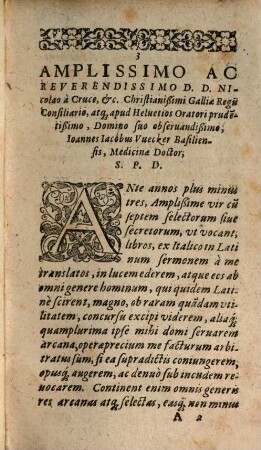 3
AMPLISSIMO AC
REVERENDISSIMO D. D. NI-
colao à Cruce, &c. Christianißimi Galliæ Regis
Consiliario, atq; apud Helvetios Oratori prudẽ-
tißimo, Domino suo observandißimo,
Ioannes Iacobus Vuecker Basilien-
sis, Medicinæ Doctor,
S. P. D.
ANte annos plus minus
tres, Amplißime vir cũ
septem selectorum siue
secretorum, vt vocant,
libros, ex Italico in Lati
num sermonem à me
translatos, in lucem ederem, atque eos ab
omni genere hominum, qui quidem Lati-
nè scirent, magno, ob raram quãdam vti-
litatem, concursu excipi viderem, aliaq;
quamplurima ipse mihi domi seruarem
arcana, operæprecium me facturum arbi-
tratus sum, si ea supradictis coniungerem,
opusq; augerem, ac denuò sub incudem re-
uocarem. Continent enim omnis generis
res arcanas atq; selectas, easq; non minus
A 2